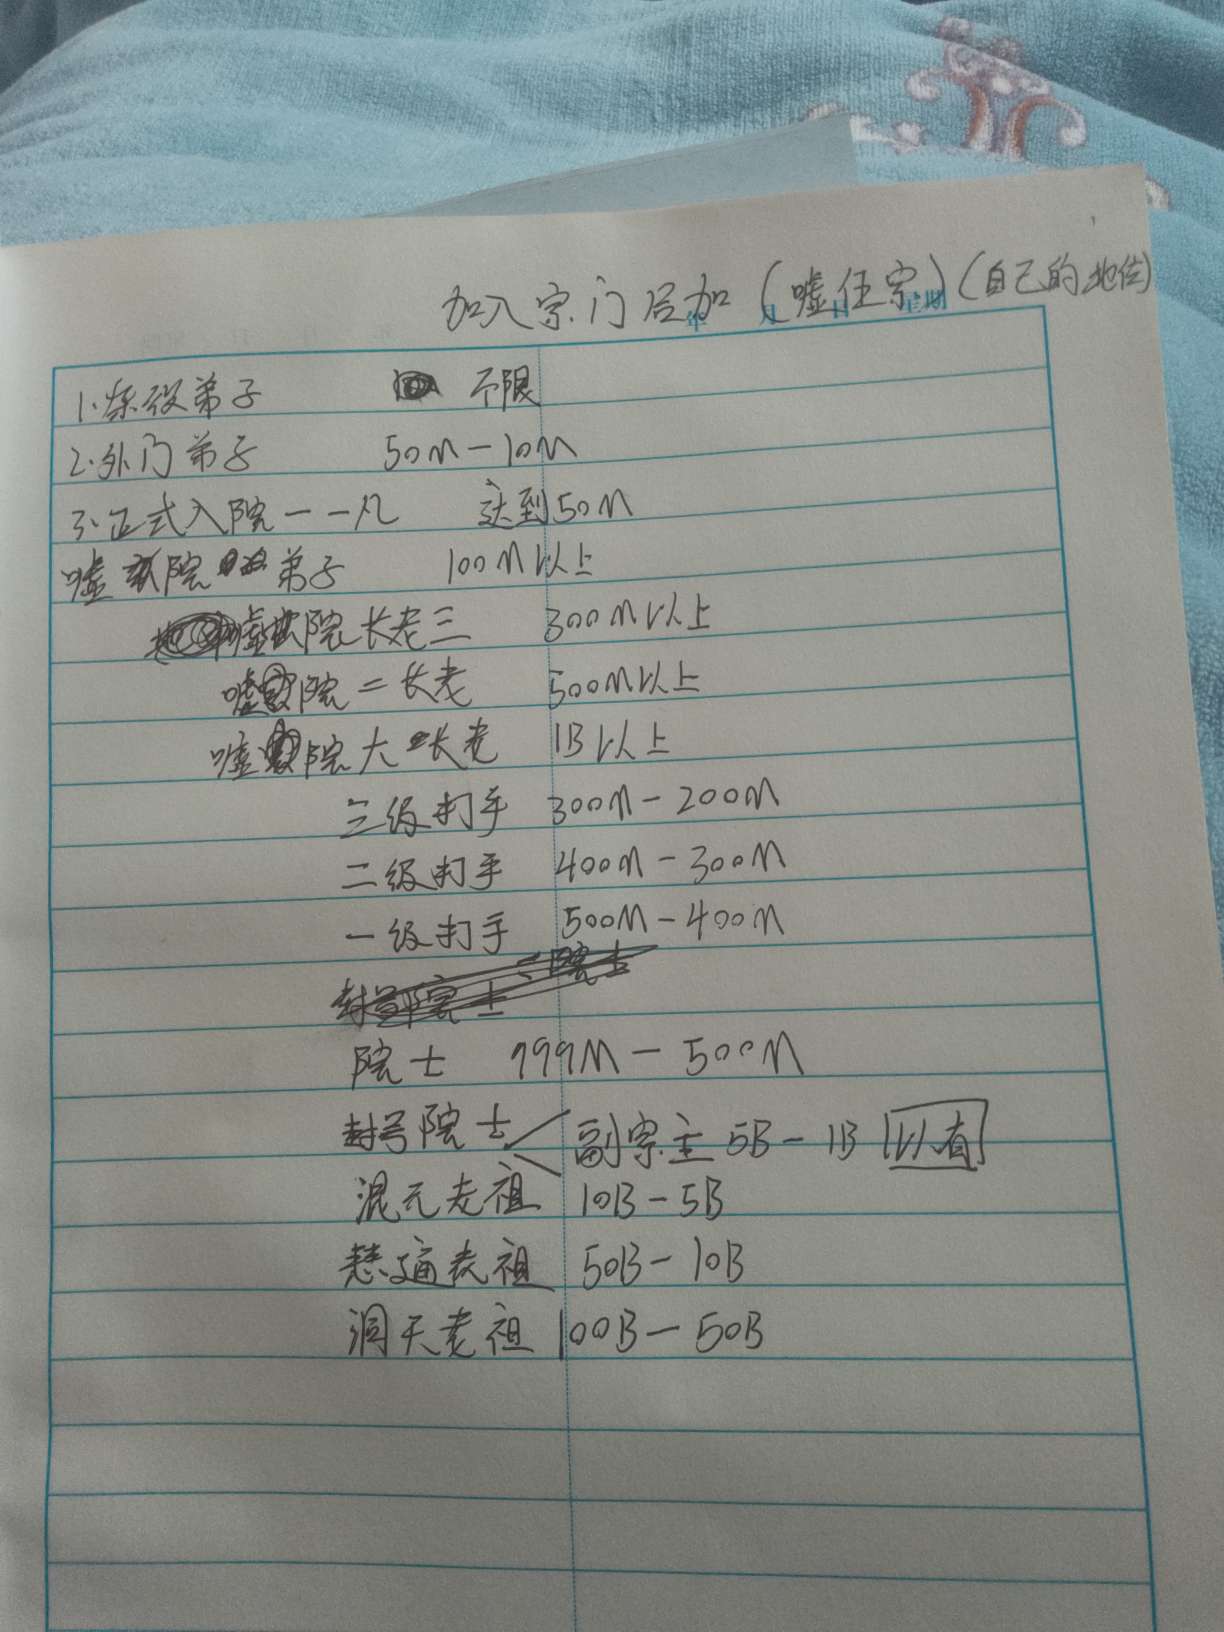 加入宗门后加（嘘任宗）（自己的地位）
年 月 日 星期
1.杂役弟子 不限
2.外门弟子 50M-10M
3.正式入院一一凡 达到50M
嘘院弟子 100M以上
嘘院长老三 300M以上
嘘院二长老 500M以上
嘘院大长老 1B以上
三级打手 300M-200M
二级打手 400M-300M
一级打手 500M-400M
院士 999M-500M
封号院士 副宗主 5B-1B 以有
混元老祖 10B-5B
慧通老祖 50B-10B
洞天老祖 100B-50B